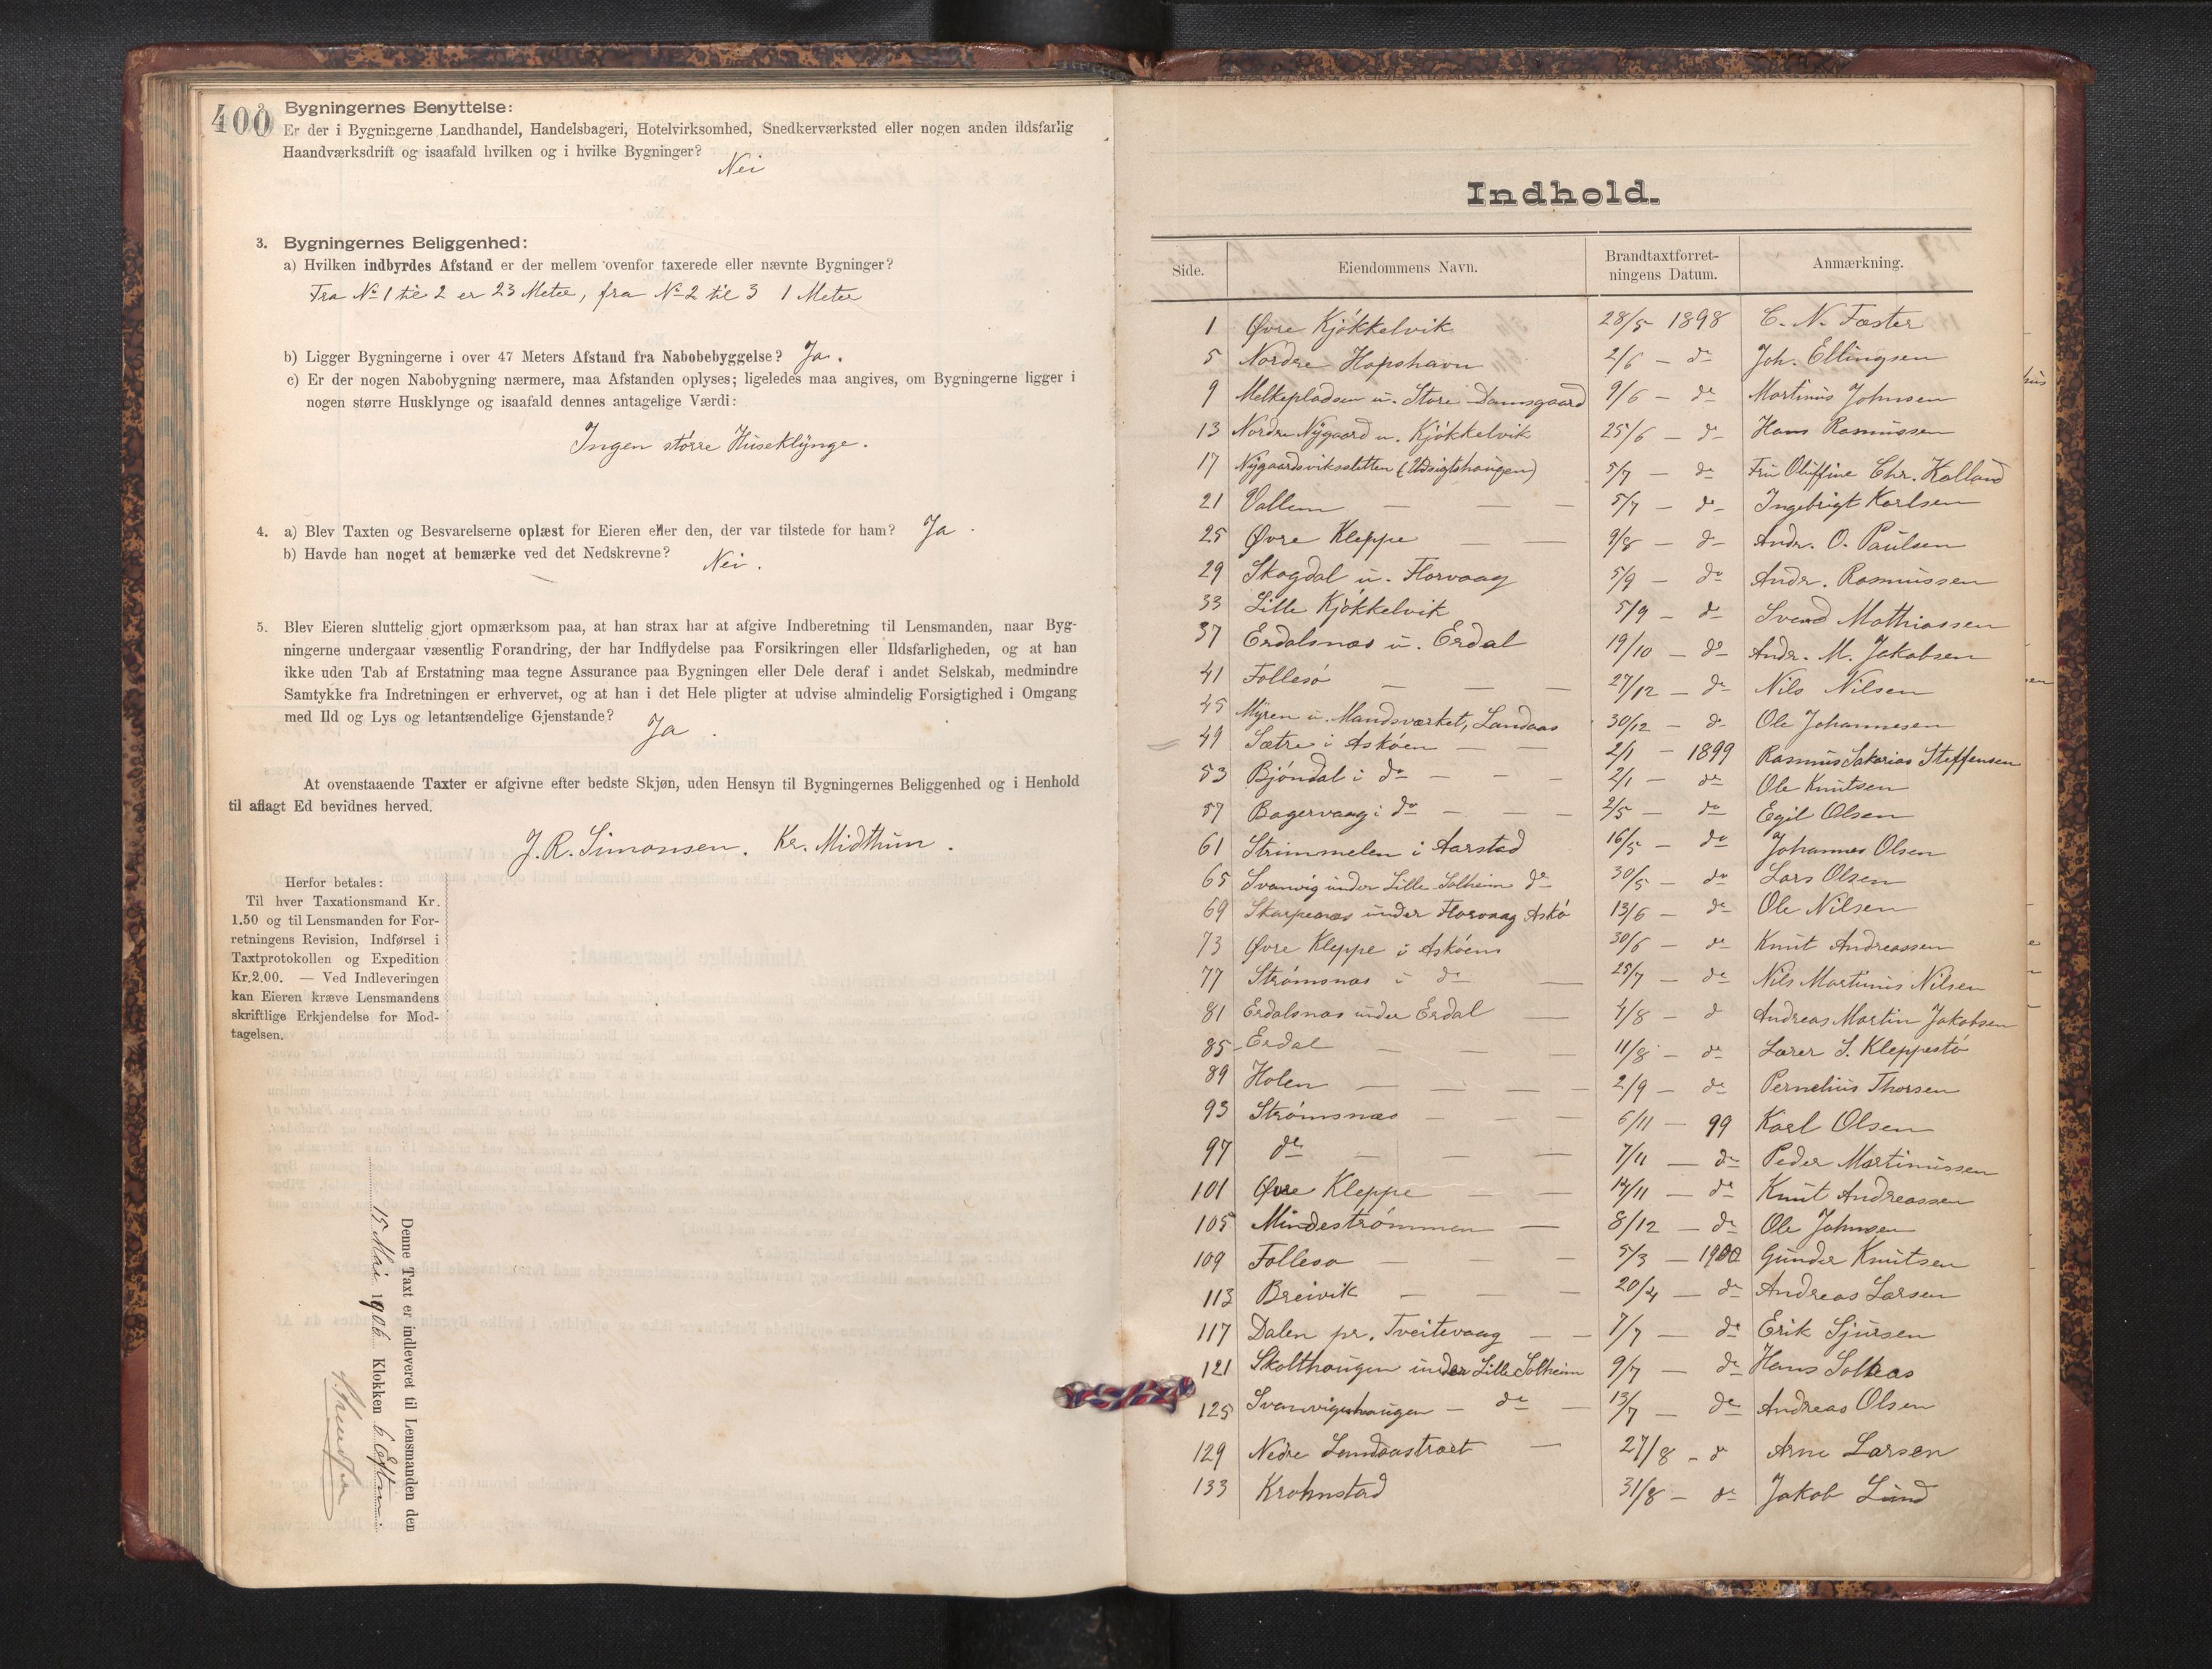 400
2. Bygningernes Benyttelse:
Er der i Bygningerne Landhandel, Handelsbageri, Hotelvirksomhed, Snedkerværksted eller nogen anden ildsfarlig
Haandværksdrift og isaafald hvilken og i hvilke Bygninger?
Nei
3. Bygningernes Beliggenhed:
a) Hvilken indbyrdes Afstand er der mellem ovenfor taxerede eller nævnte Bygninger?
Fra No 1 til 2 er 23 Meter, fra No 2 til 3 1 Meter
b) Ligger Bygningerne i over 47 Meters Afstand fra Nabobebyggelse? Ja.
c) Er der nogen Nabobygning nærmere, maa Afstanden oplyses; ligeledes maa angives, om Bygningerne ligger i
nogen større Husklynge og isaafald dennes antagelige Værdi:
Ingen större Huseklynge.
4. a) Blev Taxten og Besvarelserne oplæst for Eieren eller den, der var tilstede for ham? Ja.
b) Havde han noget at bemærke ved det Nedskrevne? Nei.
5. Blev Eieren sluttelig gjort opmærksom paa, at han strax har at afgive Indberetning til Lensmanden, naar Byg-
ningerne undergaar væsentlig Forandring, der har Indflydelse paa Forsikringen eller Ildsfarligheden, og at han
ikke uden Tab af Erstatning maa tegne Assurance paa Bygningen eller Dele deraf i andet Selskab, medmindre
Samtykke fra Indretningen er erhvervet, og at han i det Hele pligter at udvise almindelig Forsigtighed i Omgang
med Ild og Lys og letantændelige Gjenstande?
Ja.
At ovenstaaende Taxter er afgivne efter bedste Skjøn, uden Hensyn til Bygningernes Beliggenhed og i Henhold
til aflagt Ed bevidnes herved.
J. R. Simonsen. Kr. Midthun.
Herfor betales:
Til hver Taxationsmand Kr.
1.50 og til Lensmanden for For-
retningens Revision, Indførsel i
Taxtprotokollen og Expedition
Kr. 2.00. — Ved Indleveringen
kan Eieren kræve Lensmandens
skriftlige Erkjendelse for Mod-
tagelsen.
Denne Taxt er indleveret til Lensmanden den
15 Mai 1906 Klokken 6 Eftm.
Indhold.
Side. Eiendommens Navn. Brandtaxtforret-
ningens Datum. Anmærkning.
1 Øvre Kjökkelvik 28/5 1898 C. N. Fæster
5 Nordre Hopshavn 2/6 — do Joh. Ellingsen
9 Melkepladsen u. Store Damsgaard 9/6 — do Martinus Johnsen
13 Nordre Nygaard u. Kjökkelvik 25/6 — do Hans Rasmussen
17 Nygaardsviksletten (Udsigtshaugen) 5/7 — do Fru Oluffine Chr. Kolland
21 Vallem — — — 5/7 — do Ingebrigt Karlsen
25 Øvre Kleppe — — 9/8 — do Andr. O. Paulsen
29 Skogdal u. Florvaag 5/9 — do Andr. Rasmussen
33 Lille Kjökkelvik 5/9 — do Svend Mathiassen
37 Erdalsnæs u. Erdal 19/10 — do Andr. M. Jakobsen
41 Follesö — — — 27/12 — do Nils Nilsen
45 Myren u. Mandsværket, Landaas 30/12 — do Ole Johannesen
49 Sætre i Asköen — — 2/1 — 1899 Rasmus Sakarias Steffensen
53 Bjöndal i do — — — 2/1 — do Ole Knutsen
57 Bagervaag i do — — — 2/5 — do Egil Olsen
61 Strimmelen i Aarstad 16/5 — do Johannes Olsen
65 Svanvig under Lille Solheim do 30/5 — do Lars Olsen
69 Skarpenæs under Florvaag Askö 13/6 — do Ole Nilsen
73 Øvre Kleppe i Asköens 30/6 — do Knut Andreassen
77 Strömsnæs i do — 25/7 — do Nils Martinus Nilsen
81 Erdalsnæs under Erdal — 4/8 — do Andreas Martin Jakobsen
85 Erdal — — — 11/8 — do Lærer S. Kleppestö
89 Holen — — — — 2/9 — do Pernelius Thorsen
93 Strömsnæs — — — 6/11 — 99 Karl Olsen
97 do — — — 7/11 — do Peder Martinussen
101 Øvre Kleppe — — 14/11 — do Knut Andreassen
105 Mindeströmmen — 8/12 — do Ole Johnsen
109 Folleso — — — 5/3 — 1900 Gunder Knutsen
113 Breivik — — — 20/4 — do Andreas Larsen
117 Dalen pr. Tveitevaag — — 7/7 — do Erik Sjursen
121 Skolthaugen under Lille Solheim 9/7 — do Hans Solhæs
125 Svanvigshaugen — do — 13/7 — do Andreas Olsen
129 Nedre Landaastræt — 27/8 — do Arne Larsen
133 Krohnstad 31/8 — do Jakob Lund